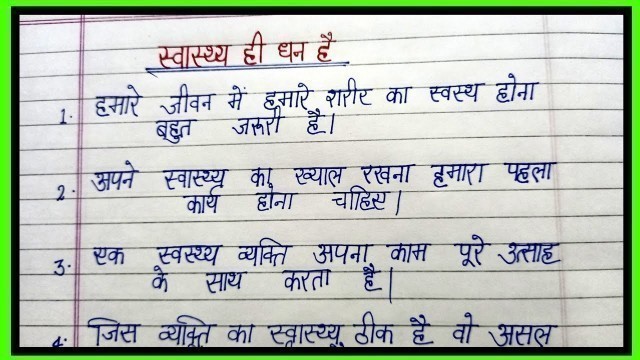 स्वास्थ्य ही धन है
1. हमारे जीवन में हमारे शरीर का स्वस्थ होना
बहुत जरूरी है।
2. अपने स्वास्थ्य का ख्याल रखना हमारा पहला
कार्य होना चाहिए।
3. एक स्वस्थ्य व्यक्ति अपना काम पूरे उत्साह
के साथ करता है।
4. जिस व्यक्ति का स्वास्थ्य ठीक है वो असल